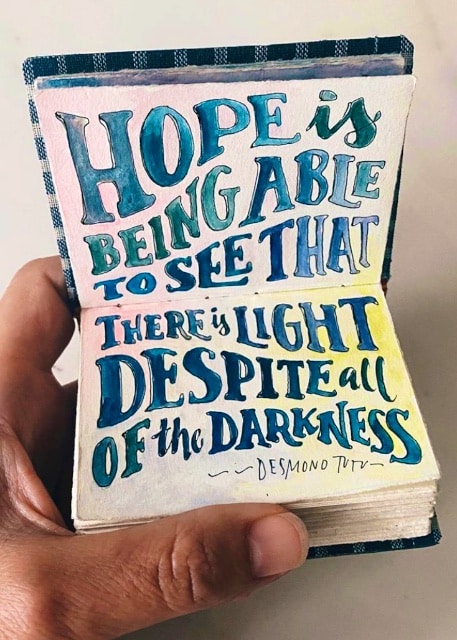 HOPE is
BEING ABLE
TO SEE THAT
THERE is LIGHT
DESPITE all
OF the DARKNESS
~~~ DESMOND TUTU —